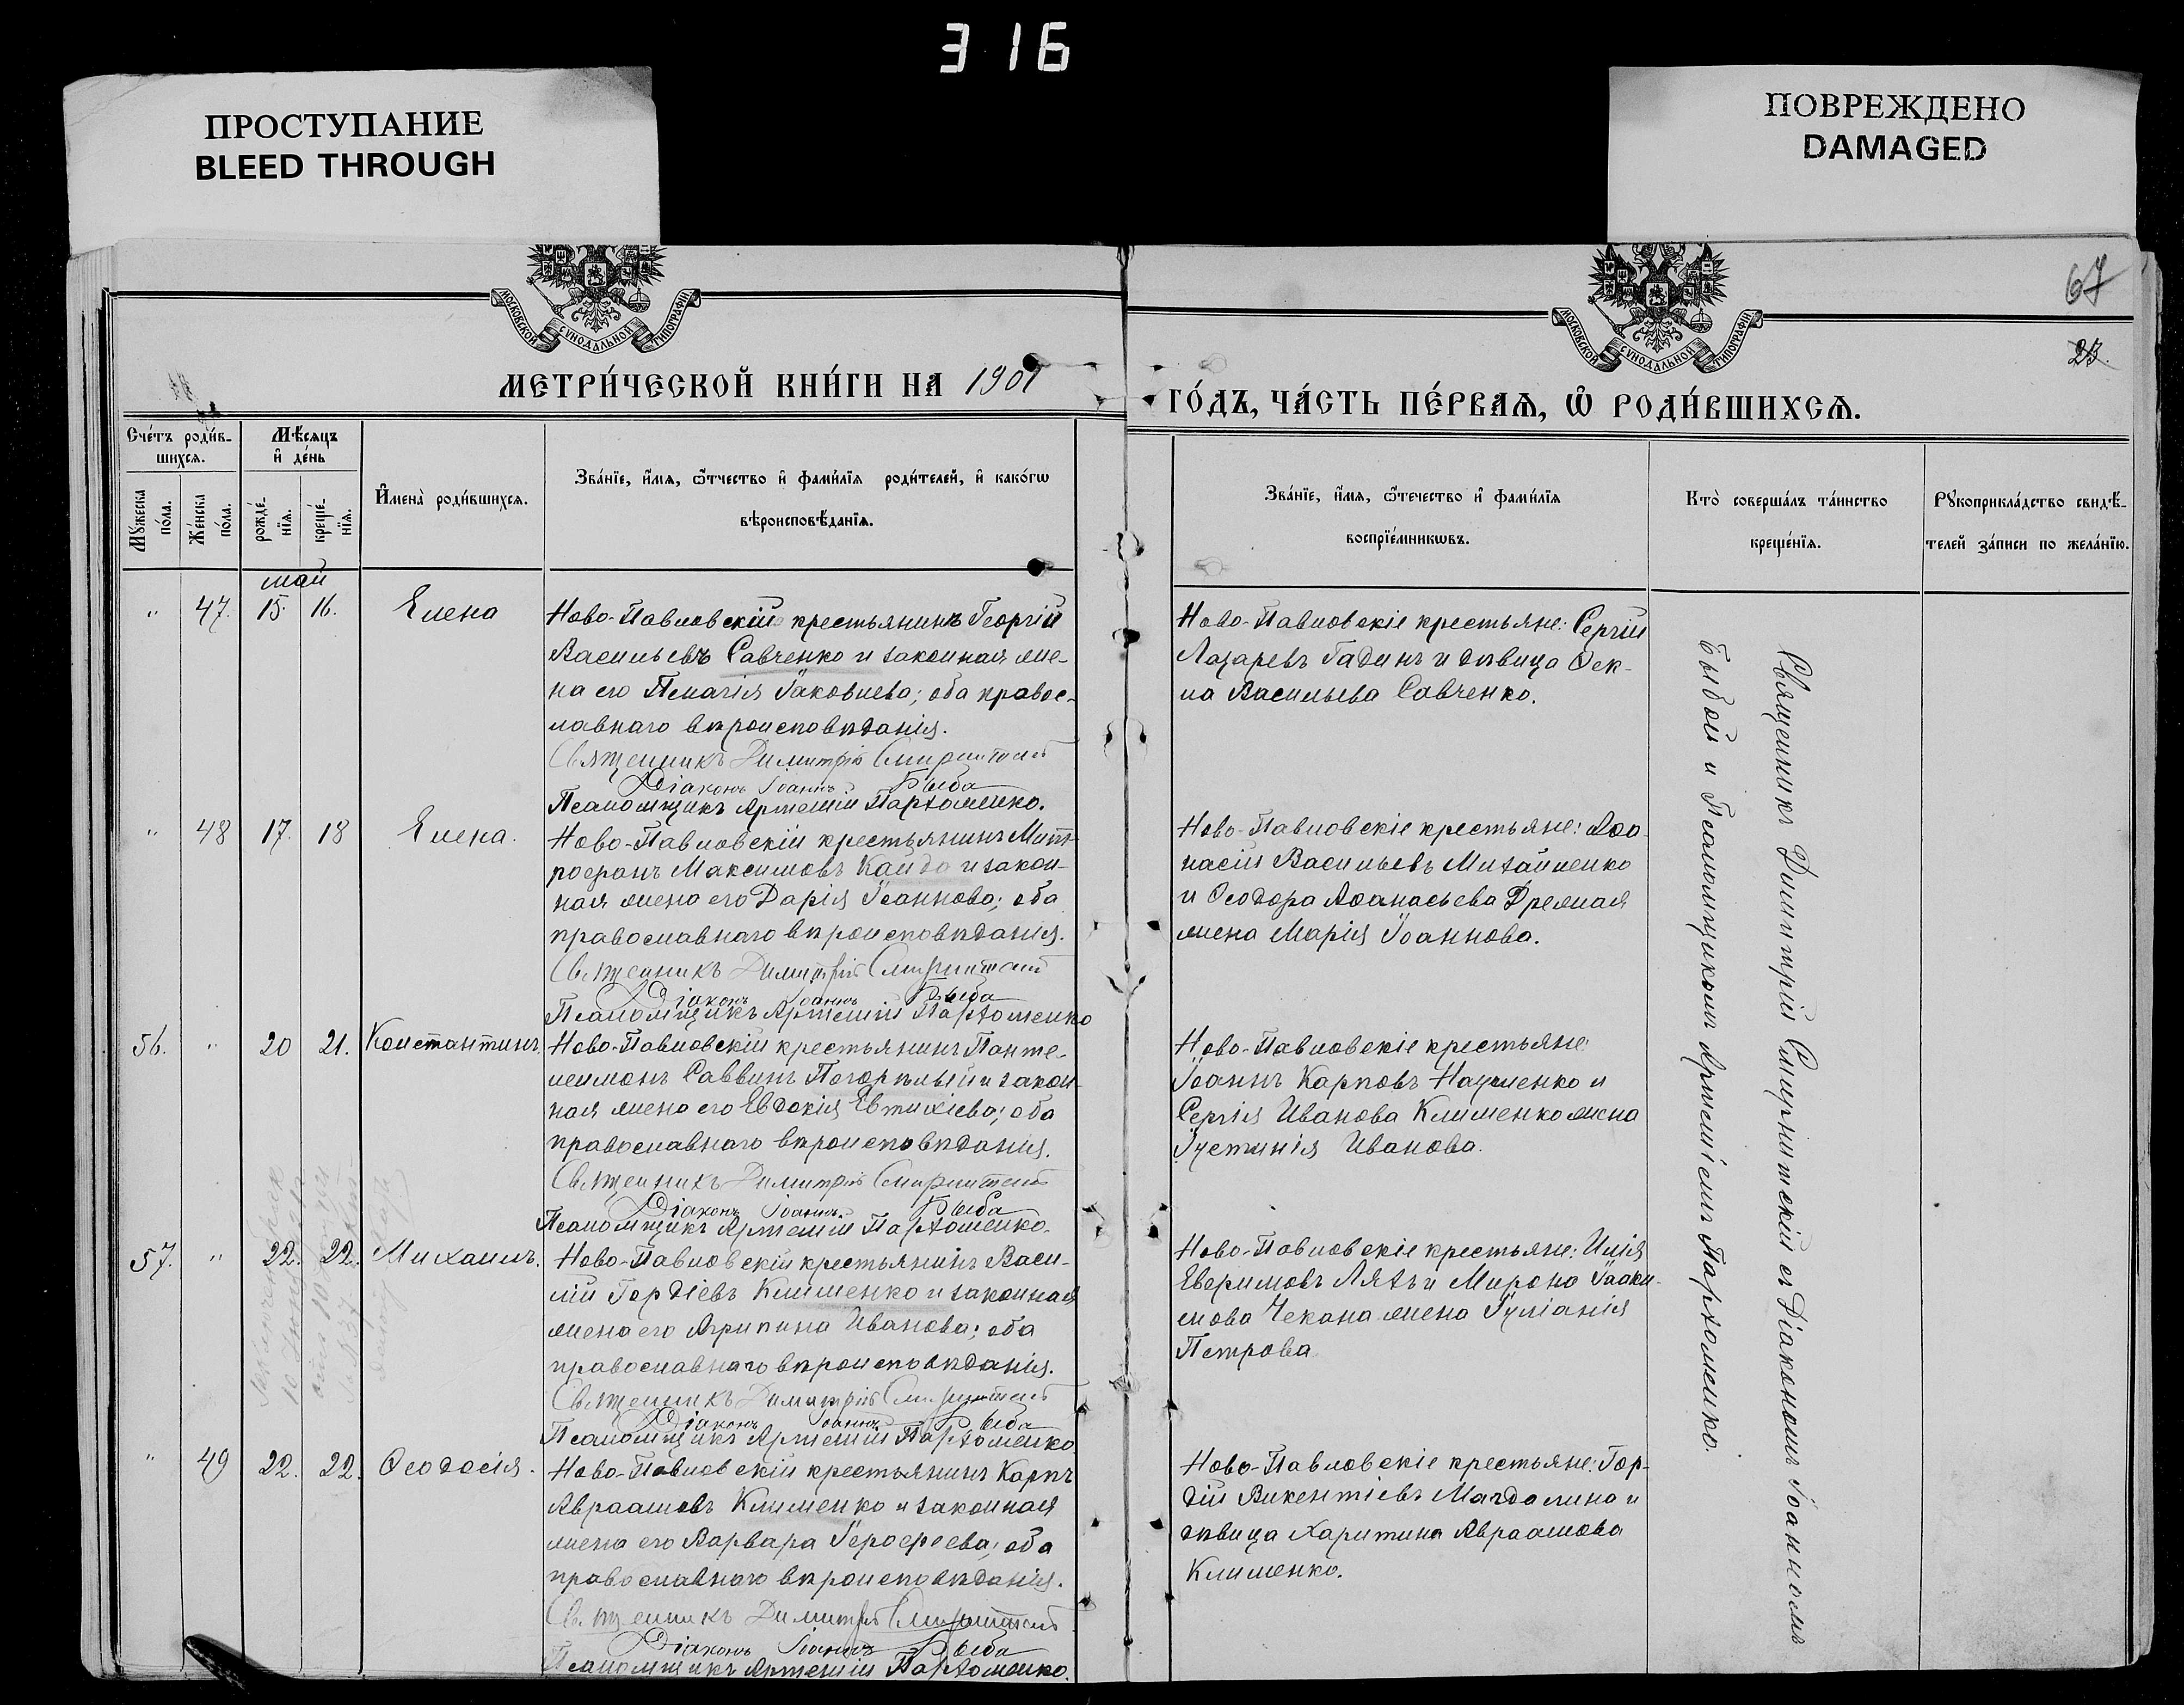 316
ПРОСТУПАНИЕ
BLEED THROUGH
ПОВРЕЖДЕНО
DAMAGED
МОСКОВСКОЙ СѴНОДАЛЬНОЙ ТИПОГРАФІИ
МОСКОВСКОЙ СѴНОДАЛЬНОЙ ТИПОГРАФІИ
67
23.
МЕТРИ́ЧЕСКОЙ КНИ́ГИ НА 1901
ГО́ДЪ, ЧА́СТЬ ПЕ́РВАѦ, Ѡ РОДИ́ВШИХСѦ.
Сче́тъ роди́в-
шихсѧ.
Мѣ́сѧцъ
и҆ де́нь
Мꙋ́жеска
по́ла.
Же́нска
по́ла.
рожде́-
нїѧ.
креще́-
нїѧ.
И҆мена̀ роди́вшихсѧ.
Зва́нїе, и҆́мѧ, ѻ҆́тчество и҆ фами́лїѧ роди́телей, и҆ како́гѡ
вѣроисповѣ́данїѧ.
Зва́нїе, и҆́мѧ, ѻ҆те́чество и҆ фами́лїѧ
воспрїе́мникѡвъ.
Кто̀ соверша́лъ та́инство
креще́нїѧ.
Рꙋкоприкла́дство свидѣ́-
телей за́писи по жела́нїю.
май
" 47. 15. 16. Елена
Ново-Павловскій крестьянинъ Георгій
Васильевъ Савченко и законная же-
на его Пелагія Іаковлева; оба правос-
лавнаго вѣроисповѣданія.
Священникъ Димитрій Смирнитскій
Діаконъ Іоаннъ Быба
Псаломщикъ Артемій Пархоменко.
Ново-Павловскіе крестьяне: Сергій
Лазаревъ Гадинъ и дѣвица Ѳек-
ла Васильева Савченко.
" 48 17. 18 Елена.
Ново-Павловскій крестьянинъ Мит-
рофанъ Максимовъ Кайда и закон-
ная жена его Дарія Іоаннова; оба
православнаго вѣроисповѣданія.
Священникъ Димитрій Смирнитскій
Діаконъ Іоаннъ Быба
Псаломщикъ Артемій Пархоменко
Ново-Павловскіе крестьяне: Аѳа-
насій Васильевъ Михайленко
и Ѳеодора Аѳанасьева
жена Марія Іоаннова.
56. " 20 21. Константинъ
Ново-Павловскій крестьянинъ Панте-
леимонъ Саввинъ Погорѣлый и закон-
ная жена его Евдокія Евтихіева; оба
православнаго вѣроисповѣданія.
Священникъ Димитрій Смирнитскій
Діаконъ Іоаннъ Быба
Псаломщикъ Артемій Пархоменко.
Ново-Павловскіе крестьяне:
Іоаннъ Карповъ Науменко и
Сергія Иванова Клименко жена
Іустинія Иванова.
57. " 22. 22. Михаилъ.
Ново-Павловскій крестьянинъ Васи-
лій Гордіевъ Клименко и законная
жена его Агрипина Иванова; оба
православнаго вѣроисповѣданія.
Священникъ Димитрій Смирнитскій
Діаконъ Іоаннъ Быба
Псаломщикъ Артемій Пархоменко
Ново-Павловскіе крестьяне: Илія
Евфимовъ Ляхъ и Мирона Іоаки-
мова Чекана жена Іуліанія
Петрова
" 49 22. 22. Ѳеодосія.
Ново-Павловскій крестьянинъ Карпъ
Авраамовъ Клименко и законная
жена его Варвара Іероѳеева; оба
православнаго вѣроисповѣданія.
Священникъ Димитрій Смирнитскій
Діаконъ Іоаннъ Быба
Псаломщикъ Артемій Пархоменко.
Ново-Павловскіе крестьяне: Гор-
дій Викентіевъ Магдалина и
дѣвица Харитина Авраамова
Клименко.
Священникъ Димитрій Смирнитскій съ Діакономъ Іоанномъ
Быбой и Псаломщикомъ Артеміемъ Пархоменко.